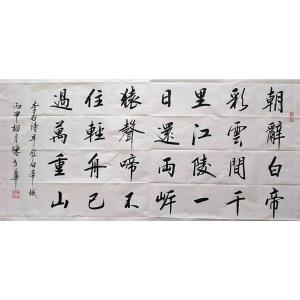 朝辭白帝
彩雲間千
里江陵一
日還兩岸
猿聲啼不
住輕舟已
過萬重山
李白詩早發白帝城
丙申